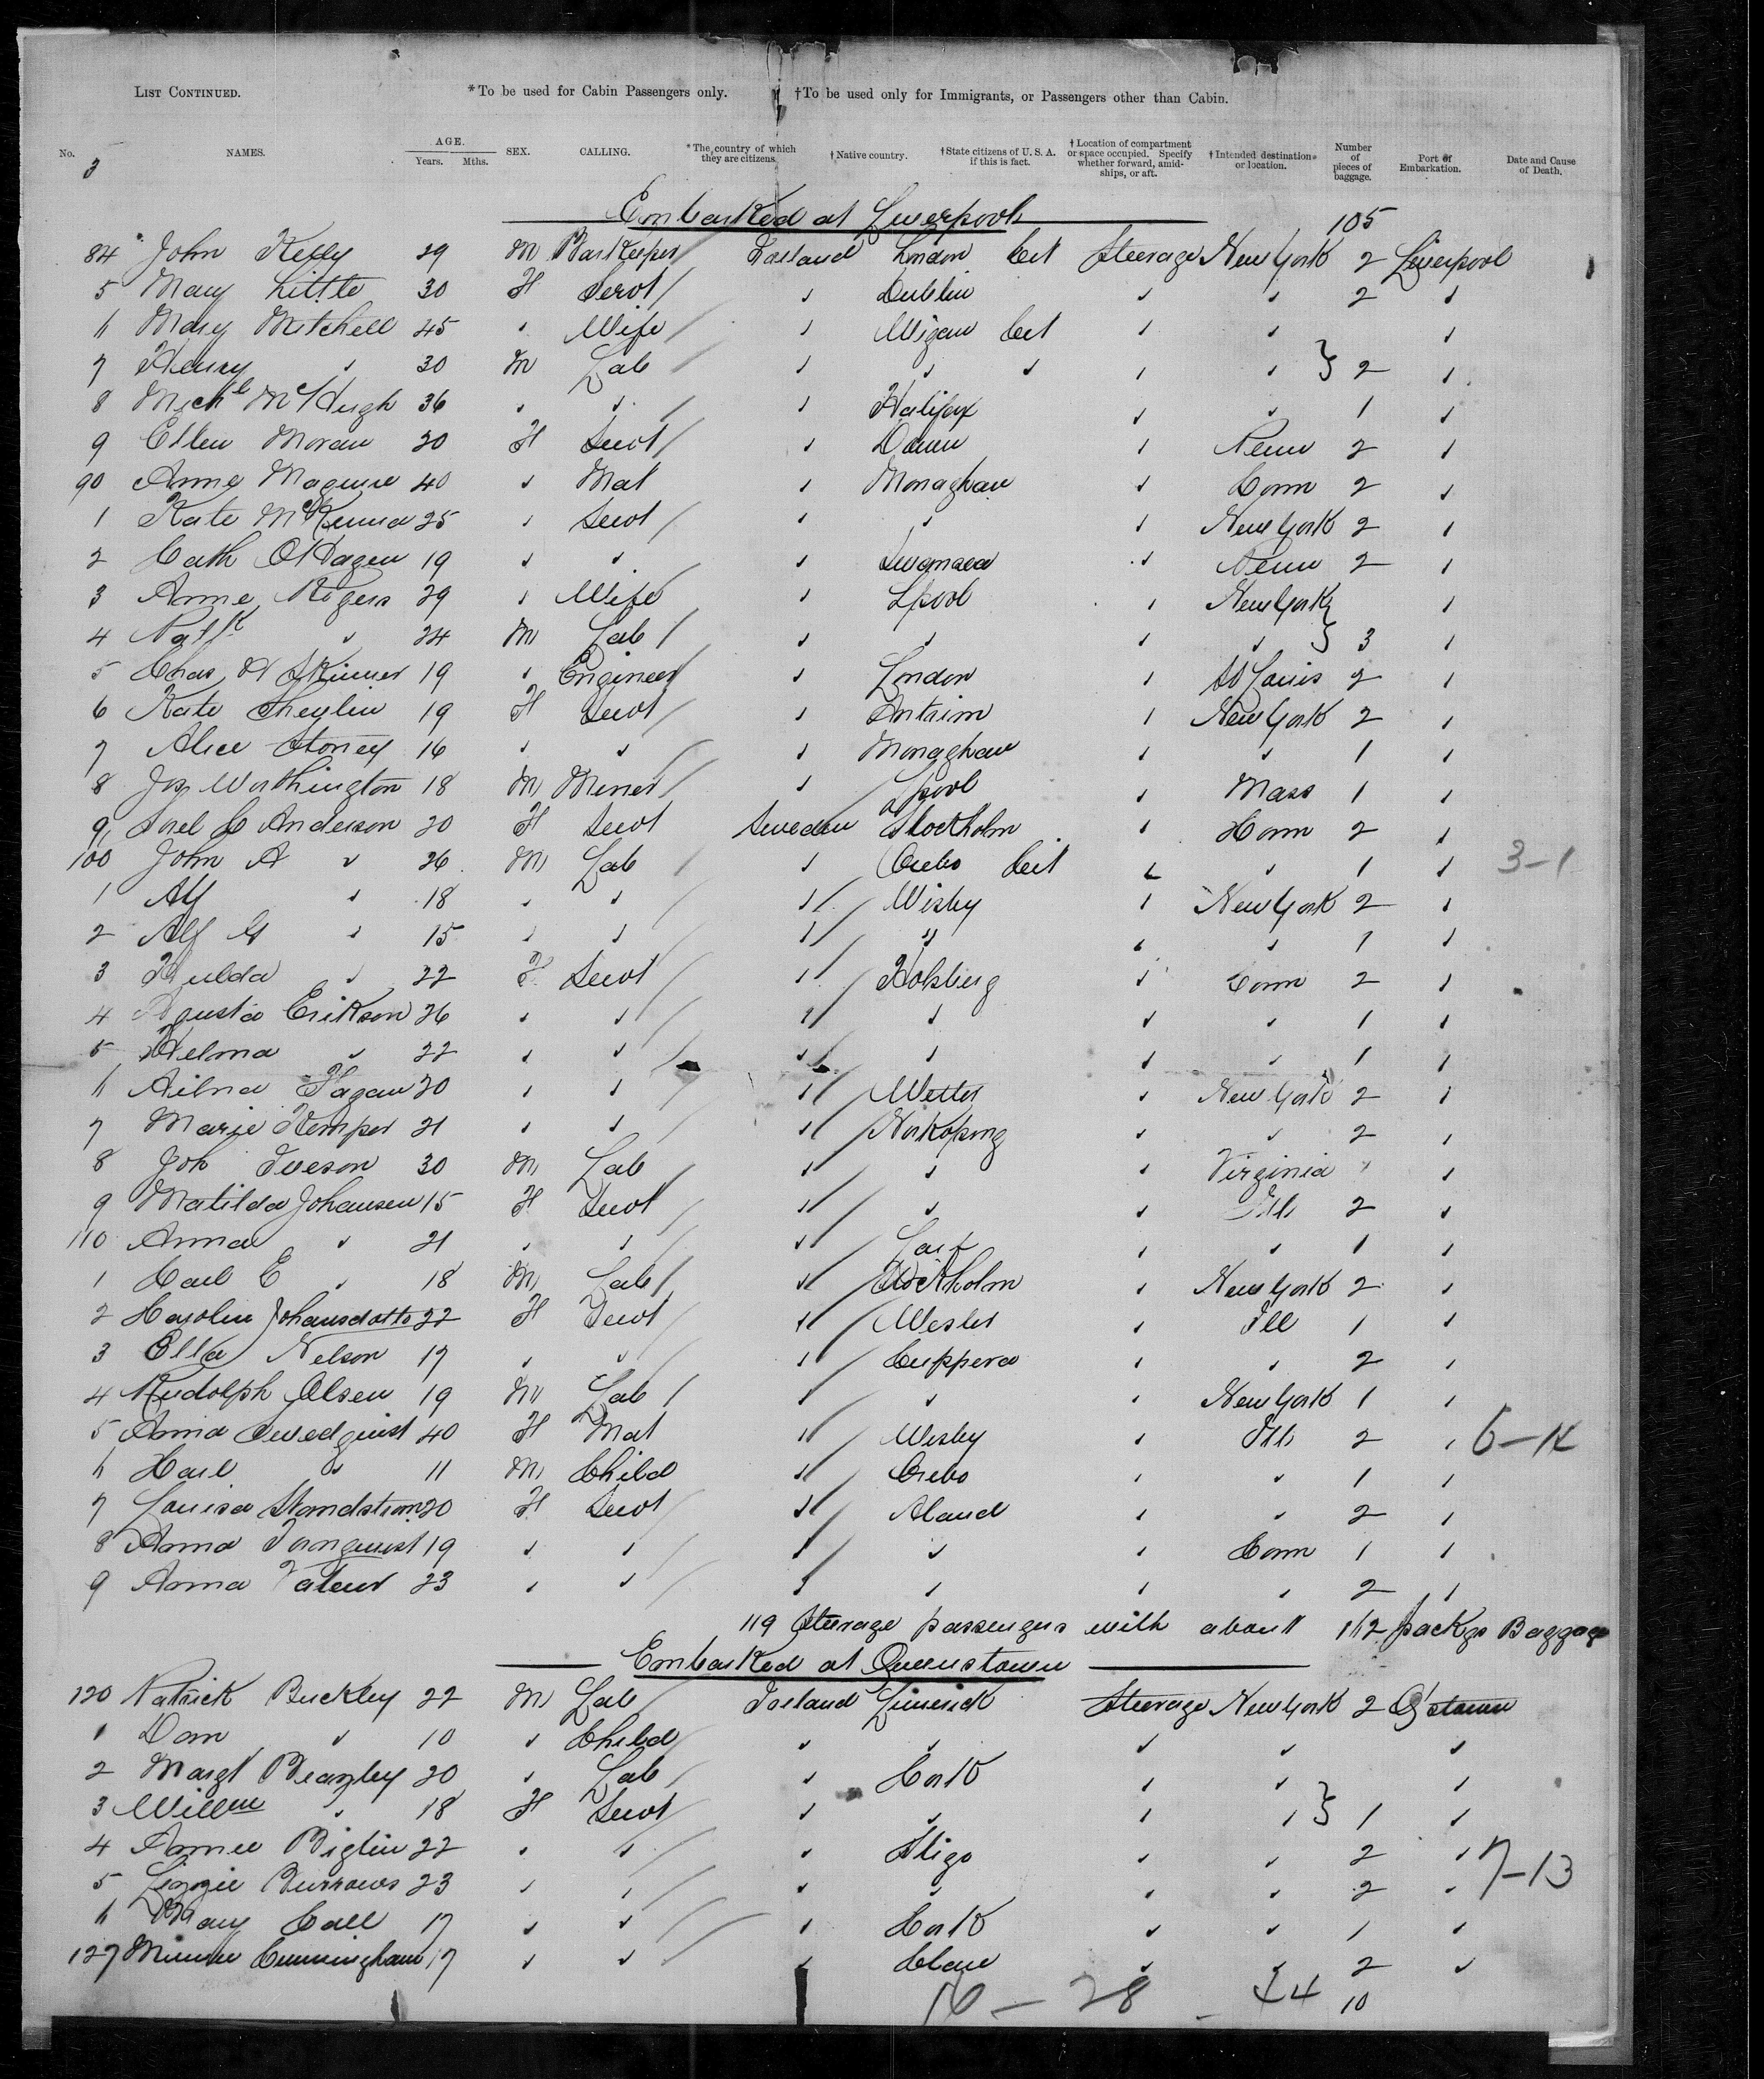 LIST CONTINUED. *To be used for Cabin Passengers only. †To be used only for Immigrants, or Passengers other than Cabin.
No. NAMES. AGE. Years. Mths. SEX. CALLING. *The country of which they are citizens. †Native country. †State citizens of U. S. A. if this is fact. †Location of compartment or space occupied. Specify whether forward, amidships, or aft. †Intended destination or location. Number of pieces of baggage. Port of Embarkation. Date and Cause of Death.
3
Embarked at Liverpool 105
84 John Kelly 29 M BarKeeper Ireland London Cit Steerage New York 2 Liverpool 1
5 Mary Little 30 F Servt " Dublin " " 2 "
6 Mary Mitchell 45 " Wife " Wigan Cit " " "
7 Henry " 30 M Lab " " " " " } 2 "
8 Michl McHugh 36 " " " Halifax " " 1 "
9 Ellen Moran 20 F Servt " Down " Penn 2 "
90 Anne Maguire 40 " Mat " Monaghan " Conn 2 "
1 Kate McKenna 25 " Servt " " " New York 2 "
2 Cath O'Hagen 19 " " " Swansea " Penn 2 "
3 Anne Rogers 29 " Wife " Lpool " New York "
4 Patk " 24 M Lab " " " " } 3 "
5 Chas H Skinner 19 " Engineer " London " St Louis 2 "
6 Kate Shevlin 19 F Servt " Antrim " New York 2 "
7 Alice Storey 16 " " " Monaghan " " 1 "
8 Jos Worthington 18 M Miner " Lpool " Mass 1 "
9 C Anderson 20 F Servt Sweden Stockholm " Conn 2 "
100 John A " 26 M Lab " Orebo Cit " " 1 " 3-1
1 Alf " 18 " " " Wisby " New York 2 "
2 Alf G " 15 " " " " " " 1 "
3 Hulda " 22 F Servt " " Conn 2 "
4 Agusta Erikson 26 " " " " " " 1 "
5 Helma " 22 " " " " " " 1 "
6 Fagan 20 " " " " New York 2 "
7 Marie Kemper 21 " " " Norkoping " " 2 "
8 Joh Iveson 30 M Lab " " " Virginia " "
9 Matilda Johansen 15 F Servt " " " Ill 2 "
110 Anna " 21 " " " " " 1 "
1 Carl E " 18 M Lab " Stockholm " New York 2 "
2 Carolin Johansdotte 22 F Servt " " Ill 1 "
3 Ella Nelson 17 " " " Cuppera " " 2 "
4 Rudolph Olsen 19 M Lab " " " New York 1 "
5 Anna Swedquist 40 F Mat " Wisby " Ill 2 " 6-14
6 Carl " 11 M Child " Orebo " " 1 "
7 Louisa Strandstrom 20 F Servt " Aland " " 2 "
8 Anna Tornquist 19 " " " " " Conn 1 "
9 Anna 23 " " " " " " 2 "
119 Steerage passengers with about 112 packgs Baggage
Embarked at Queenstown
120 Patrick Buckley 22 M Lab Ireland Limerick Steerage New York 2 Q'stown
1 Dan " 10 " Child " " " " "
2 Margt Beazley 20 " Lab " Cork " " "
3 Willm " 18 F Servt " " " " } 1 "
4 Annie Biglin 22 " " " Sligo " " 2 "
5 Lizzie Burrows 23 " " " " " " 2 " 7-13
6 Mary Call 17 " " " Cork " " 1 "
127 Minnie Cunningham 17 " " " Clare " " 2 "
16 - 28 - 44 10